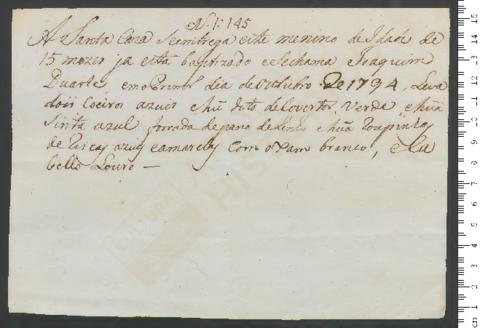 N. 1: 145
A Santa Caza Se entrega este menino de Idade de
15 mezes ja está bautizado e Se chama Joaquim
Duarte em o Primro dia de Octubro de 1794, Leva
dois Coeiros azuis e hũ dito de Covertor Verde e hũa
Sinta azul forrada de pano de Linho e hũa
de Riscas azuis e amarelas Com o Pam branco, e Ca
bello Louro —